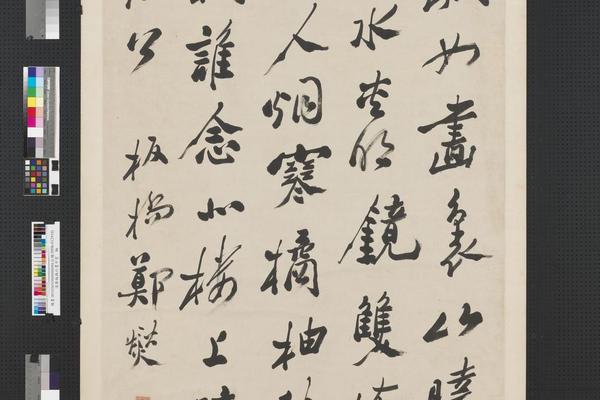 如畫裏山
水夾明鏡雙
人烟寒橘柚
誰念北樓上
公 板橋鄭燮